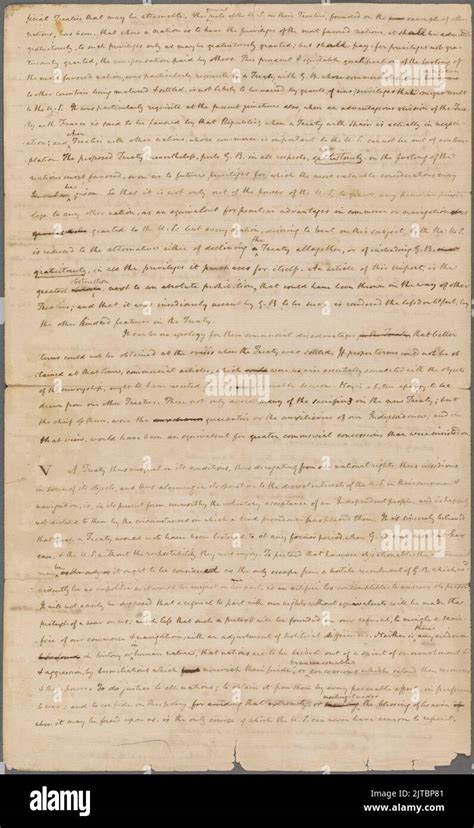 general
special Treaties that may be attainable. The rule of the U.S. in their Treaties founded on the example of other
nations, has been, that when a nation is to have the privileges of the most favored nations, it shall be admitted
gratuitously, to such privileges only as may be gratuitously granted; but shall pay for privileges not gra-
tuitously granted, the compensation paid by others. This prudent & equitable qualification of the footing of
the most favored nation, was particularly requisite in a Treaty with G.B. whose commercial
to other countries being matured & settled, is not likely to be varied by grants of new privileges that might result
to the U.S. It was particularly requisite at the present juncture also when an advantageous revision of the Trea-
ty with France is said to be favored by that Republic; when a Treaty with Spain is actually in negocia-
tion; and Treaties with other nations, whose commerce is important to the U.S. cannot be out of contem-
plation. The proposed Treaty nevertheless, puts G.B. in all respects, gratuitously, on the footing of the
nations most favored, even as to future privileges for which the most valuable considerations may
be given. So that it is not only out of the power of the U.S. to
lege to any other nation, as an equivalent for peculiar advantages in commerce or navigation
granted to the U.S. but every nation, desiring to treat on this subject with the U.S.
is reduced to the alternative either of declining the Treaty altogether, or of including G.B.
gratuitously, in all the privileges it purchases for itself. An article of this import is the
greatest obstruction next to an absolute prohibition, that could have been thrown in the way of other
Treaties, and that it was insidiously meant by G.B. to be such, is rendered the less doubtful, by
the other kindred features in the Treaty.
It can be no apology for these commercial disadvantages that better
terms could not be obtained at the crisis when the Treaty was settled. If proper terms could not be ob-
tained at that time, commercial which were no wise essentially connected with the objects
of the Envoyship, ought to have waited for a favorable season. Nor is a better apology to be
drawn from our other Treaties. Those not only many of the sacrifices in the new Treaty; but
the chief of them, were the guaranties or the auxiliaries of our Independence, and in
that view, would have been an equivalent for greater commercial concessions than were insisted on.
V A Treaty thus unequal in its conditions, thus derogating from our national rights, thus insidious
in some of its objects, and thus alarming in its operation to the dearest interests of the U.S. in their commerce &
navigation, is, in its present form unworthy the voluntary acceptance of an Independent people, and is happily
not dictated to them by the circumstances in which a kind providence has placed them. It is sincerely believed
that such a Treaty would not have been listened to at any former period, when G.B. was most at her
ease, & the U.S. without the respectability they now enjoy. To pretend that however objectionable the
may be, it ought to be considered as the only escape from a hostile resentment of G.B. which would
evidently be as impolitic as it would be unjust on her part, is an artifice too contemptible to answer its purpose.
It will not easily be supposed that a refusal to part with our rights without an equivalent will be made the
pretext of a war on us; much less that such a pretext will be founded on our refusal, to mingle a sacri-
fice of our commerce & navigation, with an adjustment of political differences. Neither is any evidence
in history or human nature, that nations are to be bribed out of a spirit of encroachment
& aggression, by humiliations which nourish their pride, or by concessions which extend their resources
& their power. To do justice to all nations; to obtain it from them by every peaceable effort, in preference
to war; and to confide in this policy, for avoiding that extremity, or the blessing of heaven
when it may be forced upon us, is the only course of which the U.S. can never have reason to repent.
alamy
Image ID: 2JTBP81
www.alamy.com